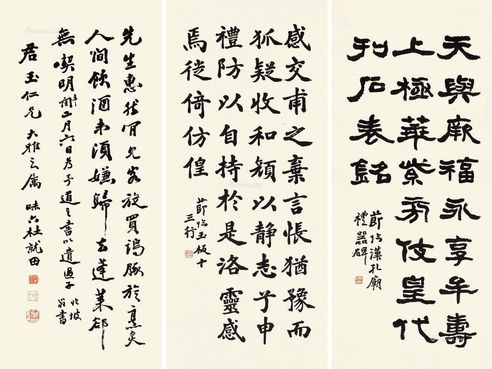 天與厥福永享牟壽
上極華紫旁伎皇代
刊石表銘
節臨漢孔廟
禮器碑
感交甫之棄言悵猶豫而
狐疑收和顏以靜志兮申
禮防以自持於是洛靈感
焉徙倚仿偟
節臨玉版十
三行
先生惠然肯見客旋買鷄豚旋烹炙
人間飲酒未須嫌歸去蓬萊郤
無喫 二月六日 書以遺過子
坡翁書
君玉仁兄大雅之屬 杜就田